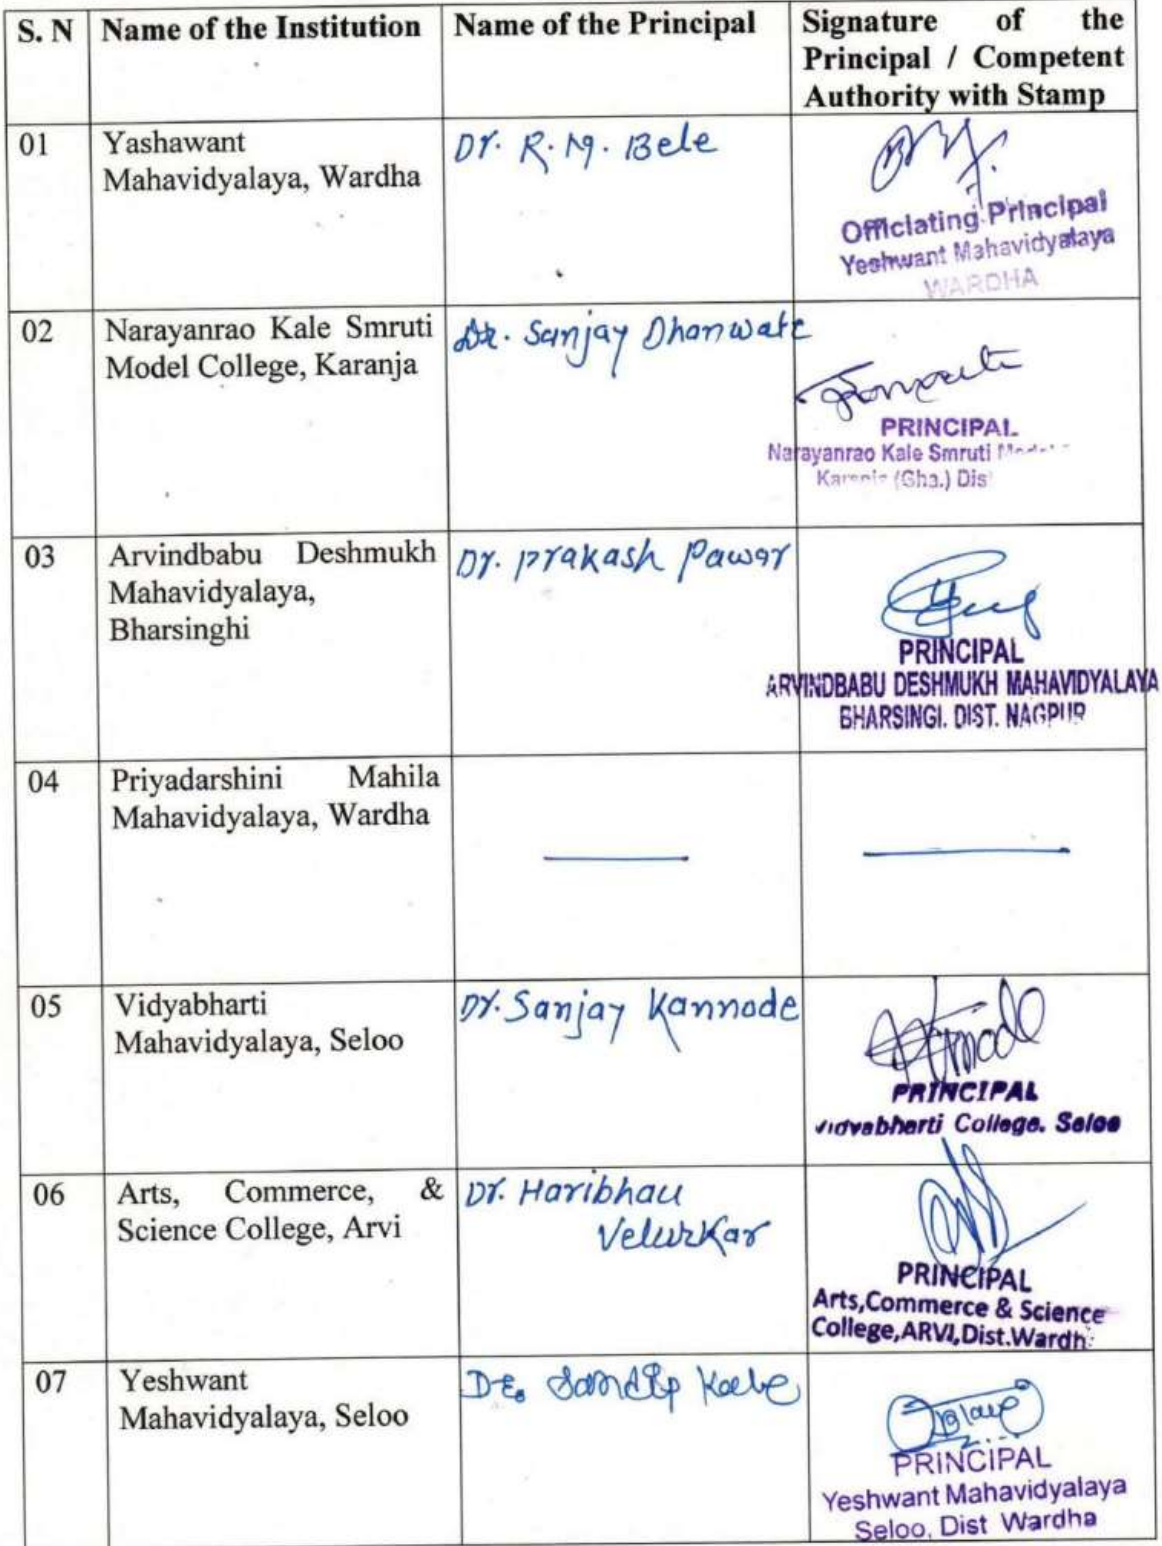 S. N Name of the Institution Name of the Principal Signature of the
Principal / Competent
Authority with Stamp
01 Yashawant
Mahavidyalaya, Wardha
Dr. R. M. Bele
Officiating Principal
Yeshwant Mahavidyalaya
WARDHA
02 Narayanrao Kale Smruti
Model College, Karanja
Dr. Sanjay Dhanwate
PRINCIPAL
Narayanrao Kale Smruti
(Gha.)
03 Arvindbabu Deshmukh
Mahavidyalaya,
Bharsinghi
Dr. Prakash Pawar
PRINCIPAL
ARVINDBABU DESHMUKH MAHAVIDYALAYA
BHARSINGI. DIST. NAGPUR
04 Priyadarshini Mahila
Mahavidyalaya, Wardha
05 Vidyabharti
Mahavidyalaya, Seloo
Dr. Sanjay Kannode
PRINCIPAL
Vidyabharti College. Seloo
06 Arts, Commerce, &
Science College, Arvi
Dr. Haribhau
Velurkar
PRINCIPAL
Arts,Commerce & Science
College,ARVI,Dist.Wardh
07 Yeshwant
Mahavidyalaya, Seloo
Dr. Sandip
PRINCIPAL
Yeshwant Mahavidyalaya
Seloo, Dist Wardha